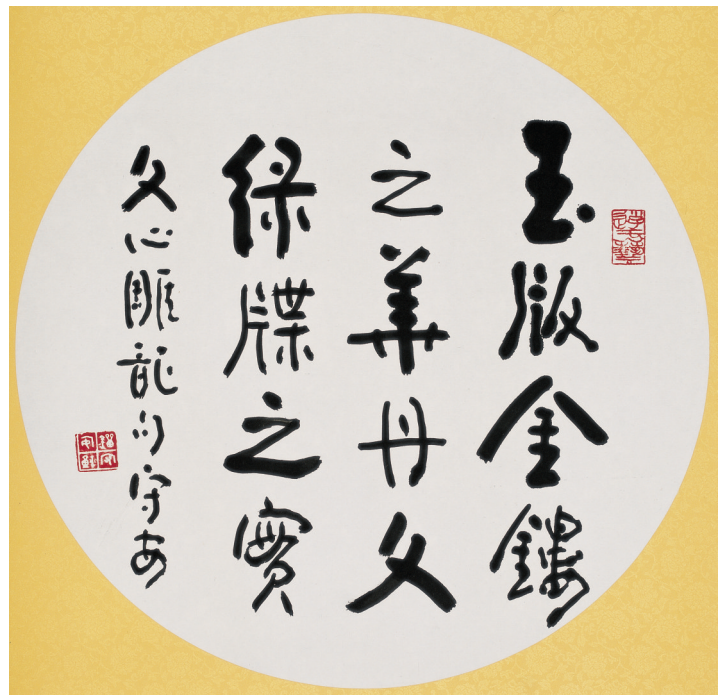 玉版金鏤
之華丹文
綠牒之實
文心雕龍句守安